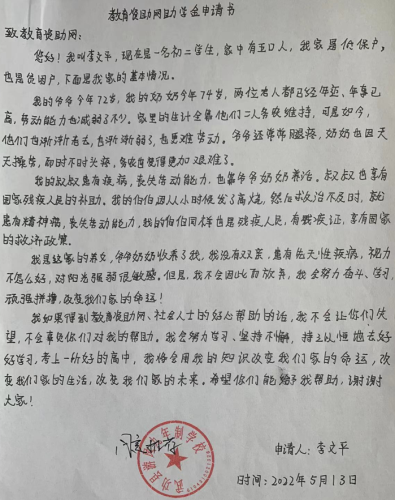 教育资助网助学金申请书
致教育资助网：
您好！我叫李文平，现在是一名初二学生，家中有五口人，我家属低保户，
也是贫困户，下面是我家的基本情况。
我的爷爷今年72岁，我的奶奶今年74岁，两位老人都已经年迈、年事已
高，劳动能力也减弱了不少。家里的生计全靠他们二人务农维持，可是如今，
他们也渐渐老去，也渐渐弱了，也更难劳动。爷爷还常常腿疼，奶奶也因天
天操劳，即时不时头疼，务农也觉得更加艰难了。
我的叔叔患有疾病，丧失劳动能力，也靠爷爷奶奶养活。叔叔也享有
国家残疾人民的补助。我的伯伯因从小时候发了高烧，然后救治不及时，就
患有精神病，丧失劳动能力，我的伯伯同样也是残疾人民，有残疾证，享有国家
的救济政策。
我是这家的养女，爷爷奶奶收养了我，我没有双亲，患有先天性疾病，视力
不怎么好，对阳光强弱很敏感。但是，我不会因此而放弃，我会努力奋斗、学习，
顽强拼搏，改变我们家的命运！
我如果得到教育资助网、社会人士的好心帮助的话，我不会让你们失
望，不会辜负你们对我的帮助。我会努力学习、坚持不懈，持之以恒地去好
好学习，考上一所好的高中，我将会用我的知识改变我们家的命运，改
变我们家的生活，改变我们家的未来。希望你们能给予我帮助，谢谢
大家！
申请人：李文平
时间：2022年5月13日